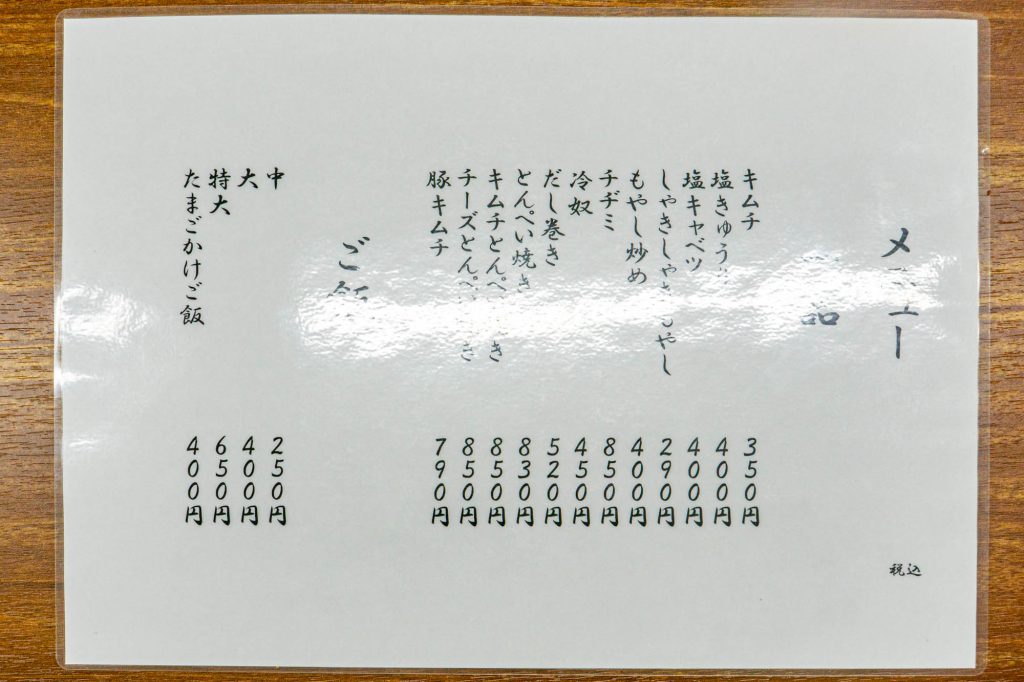 メニュー 税込
品
キムチ 350円
塩きゅうり 400円
塩キャベツ 400円
しゃきしゃきもやし 290円
もやし炒め 400円
チヂミ 850円
冷奴 450円
だし巻き 520円
とんぺい焼き 830円
キムチとんぺい焼き 850円
チーズとんぺい焼き 850円
豚キムチ 790円
ご飯
中 250円
大 400円
特大 650円
たまごかけご飯 400円